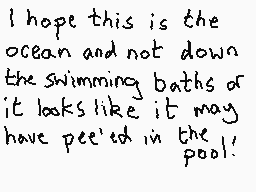 I hope this is the
ocean and not down
the swimming baths or
it looks like it may
have pee'ed in the
pool!